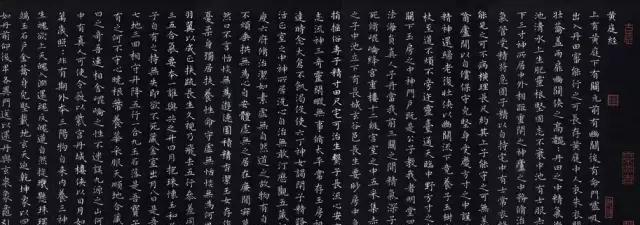 黃庭經
上有黃庭下有關元前有幽闕後有命門噓吸廬外
出入丹田審能行之可長存黃庭中人衣朱衣關門
壯籥蓋兩扉幽闕俠之高巍巍丹田之中精氣微玉
池清水上生肥靈根堅志不衰中池有士服赤朱橫
下三寸神所居中外相距重閉之神廬之中務脩治玄雍
氣管受精符急固子精以自持宅中有士常衣絳子
能見之可不病橫理長尺約其上子能守之可無恙呼
噏廬間以自償保守完堅身受慶方寸之中謹蓋藏
精神還歸老復壯俠以幽闕流下竟養子玉樹令可
杖至道不煩不旁迕靈臺通天臨中野方寸之中至
關下玉房之中神門戶既是公子教我者明堂四達
法海源真人子丹當我前三關之間精氣深子欲不
死脩崐崙絳宮重樓十二級宮室之中五采集赤神
之子中池立下有長城玄谷邑長生要眇房中急棄
捐搖俗專子精寸田尺宅可治生繫子長流心安寧觀
志流神三奇靈閑暇無事脩太平常存玉房視明
達時念太倉不飢渴役使六丁神女謁閉子精路可長
活正室之中神所居洗心自治無敢汙歷觀五藏視節
度六府脩治潔如素虛無自然道之故物有自然事
不煩垂拱無為心自安體虛無之居在廉間寂莫曠
然口不言恬惔無為遊德園積精香潔玉女存作道
憂柔身獨居扶養性命守虛無恬惔無為何思慮
羽翼以成正扶疏長生久視乃飛去五行參差同根節
三五合氣要本一誰與共之升日月抱珠懷玉和子室
子自有之持無失即得不死藏金室出月入日是吾道天
七地三回相守升降五行一合九玉石落落是吾寶子自
有之何不守心曉根蔕養華采服天順地合藏精七日
之奇吾連相合崐崙之性不迷誤九源之山何亭亭
中有真人可使令蔽以紫宮丹城樓俠以日月如明珠
萬歲照照非有期外本三陽物自來內養三神可長
生魂欲上天魄入淵還魂反魄道自然旋璣懸珠環無
端玉石戶金籥身完堅載地玄天迴乾坤象以四時赤
如丹前仰後卑各異門送以還丹與玄泉象龜引氣